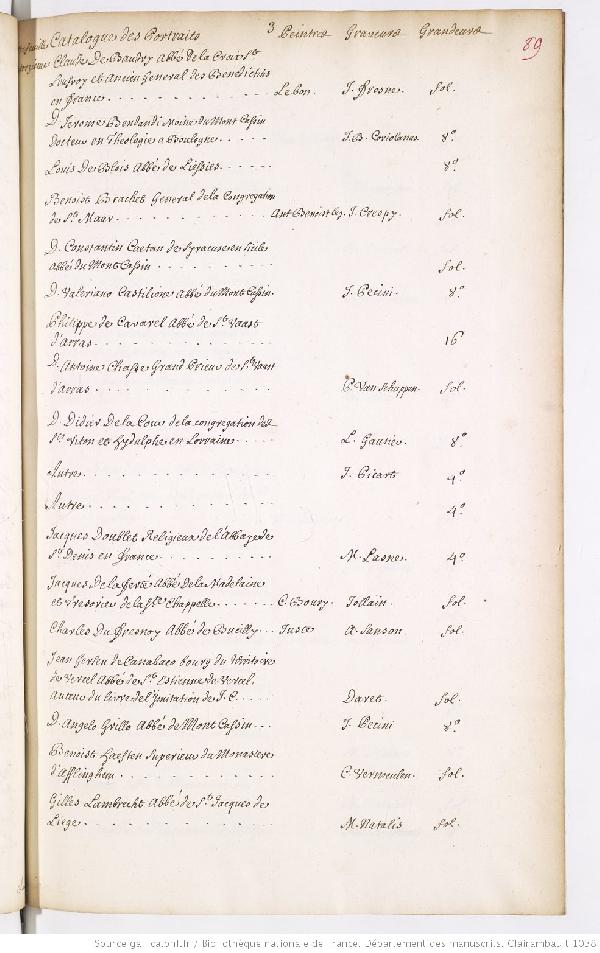 Catalogue des Portraits 3 Peintres Graveurs Grandeurs
89
Claude De Baudry Abbé De la Croix St.
Leufroy et Ancien General des Benedictins
en France . . . . . Le bon. J. Fresne. fol.
D. Jerome Bendandi Moine du Mont Cassin
Docteur en Theologie a Boulogne . . . . . J. B. Coriolanus 8º
Louis De Blois Abbé de Liessies . . . . . 8º
Benoist Brachet General de la Congregation
de St. Maur . . . . . Ant Benoist J. Crespy. fol.
D. Constantin Caetan de Syracuse en Sicile
Abbé du Mont Cassin . . . . . fol.
D. Valeriano Castilione Abbé du Mont Cassin. J. Pecini. 8º
Philippe de Cavarel Abbé de St. Vaast
d'Arras . . . . . 16
D. Antoine Chasse Grand Prieur de St. Vaast
d'Arras . . . . . P. Van Schuppen. fol.
D. Didier De la Cour de la congregation de
St. Viton et Hydulphe en Lorraine . . . . . L. Gautier. 8º
Autre . . . . . J. Picart 4º
Autre . . . . . 4º
Jacques Doublet Religieux de l'Abbaye de
St. Denis en France . . . . . M. Lasne. 4º
Jacques De la ferté Abbé De la Madelaine
et Tresorier de la Ste. Chappelle . . . . . C. Boury. Jollain. fol.
Charles Du Fresnoy Abbé de Bucilly . . . Juste A. Sanson fol.
Jean Gersen de Canabaco bourg du territoire
de Vercel Abbé de St. Estienne de Vercel.
Auteur du livre de l'Imitation de J. C. . . . Daret. fol.
D. Angelo Grillo Abbé de Mont Cassin . . . J. Pecini 8º
Benoist Haeften Superieur du Monastere
d'Afflinghem . . . . . C. Vermeulen. fol.
Gilles Lambrecht Abbé de St. Jacques de
Liege . . . . . M. Natalis fol.
Source gallica.bnf.fr / Bibliothèque nationale de France. Département des manuscrits. Clairambault 1038